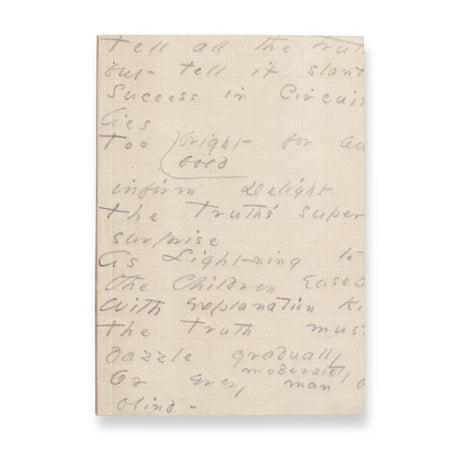 tell all the trut
but tell it slant
Success in Circui
lies
too bright for ou
bold
infirm Delight
the Truth's super
surprise
As Lightning to
the Children Eased
With explanation Ki
the Truth mus
Dazzle gradually
moderately
Or every man
blind -